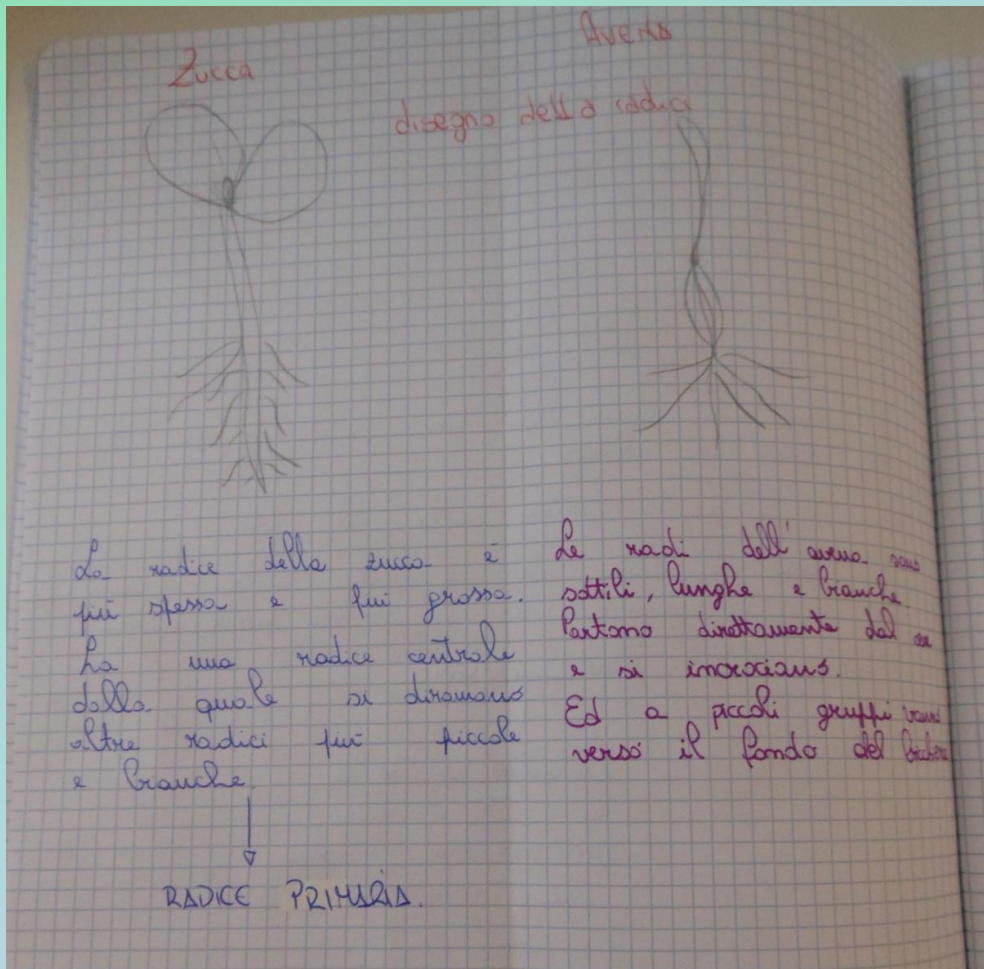 Zucca
Avena
disegno della radici
La radice della zucca è
più spessa e più grossa.
ha una radice centrale
dalla quale si diramano
altre radici più piccole
e bianche
RADICE PRIMARIA.
Le radi dell'avena sono
sottili, lunghe e bianche
Partono direttamente dal
e si incrociano.
Ed a piccoli gruppi vanno
verso il fondo del bicchiere